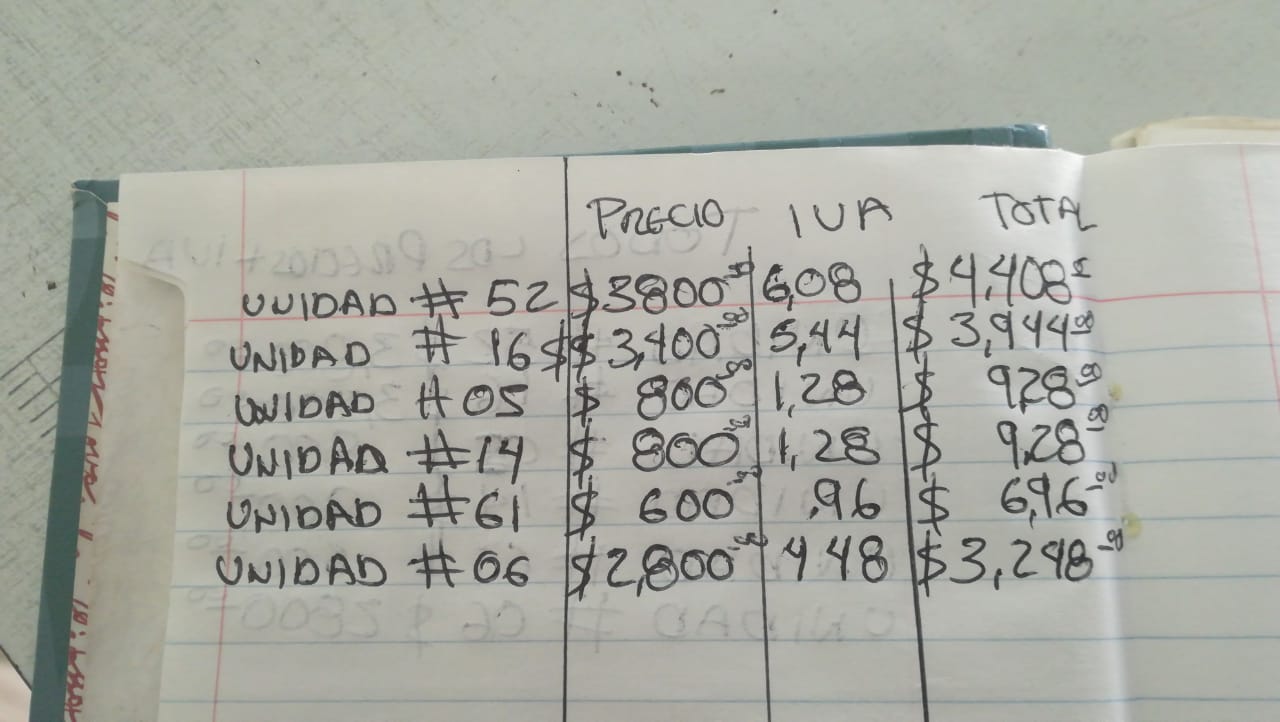 PRECIO IVA TOTAL
UNIDAD # 52 $3800.00 6,08 $4,408
UNIDAD # 16 $ $3,400.00 5,44 $3,944.00
UNIDAD #05 $ 800.00 1,28 $ 928.00
UNIDAD #14 $ 800.00 1,28 $ 9,28.00
UNIDAD #61 $ 600.00 .96 $ 6,96.00
UNIDAD #06 $2,800.00 448 $3,248.00